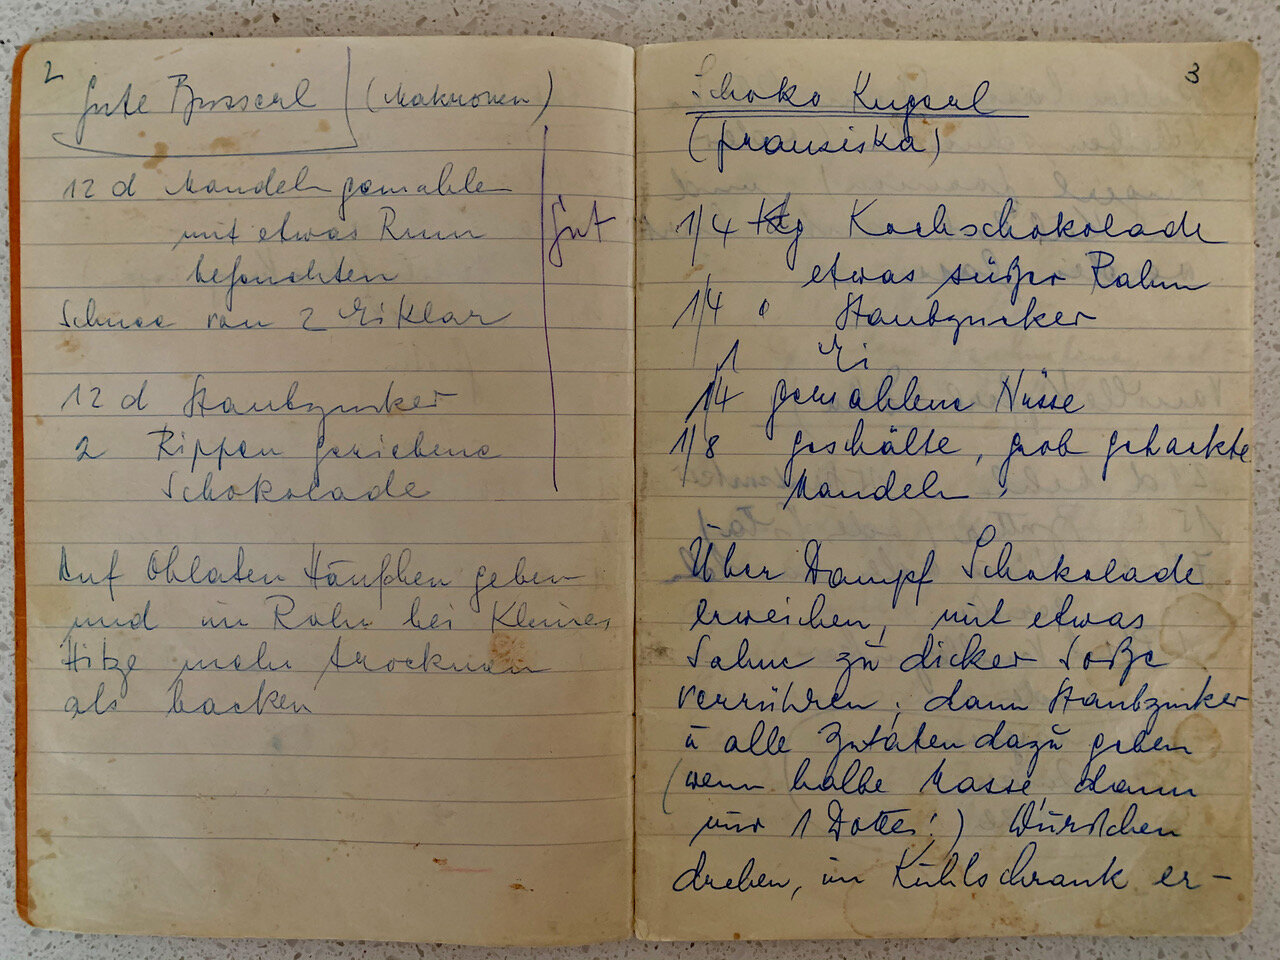 2
Gute Busserl (Makronen)
12 d Mandeln gemahlen
mit etwas Rum
befeuchten
Schnee von 2 Eiklar
Gut
12 d Staubzucker
2 Rippen geriebene
Schokolade
Auf Oblaten Häufchen geben
und im Rohr bei kleiner
Hitze mehr trocknen
als backen
3
Schoko Kugerl
(Franziska)
1/4 Kg Kochschokolade
etwas süßer Rahm
1/4 Staubzucker
1 Ei
1/4 gemahlene Nüsse
1/8 geschälte, grob gehackte
Mandeln
Über Dampf Schokolade
erweichen, mit etwas
Sahne zu dicker Soße
verrühren, dann Staubzucker
u alle Zutaten dazu geben
(wenn halbe Masse, dann
nur 1 Dotter!) Würstchen
drehen, im Kühlschrank er-